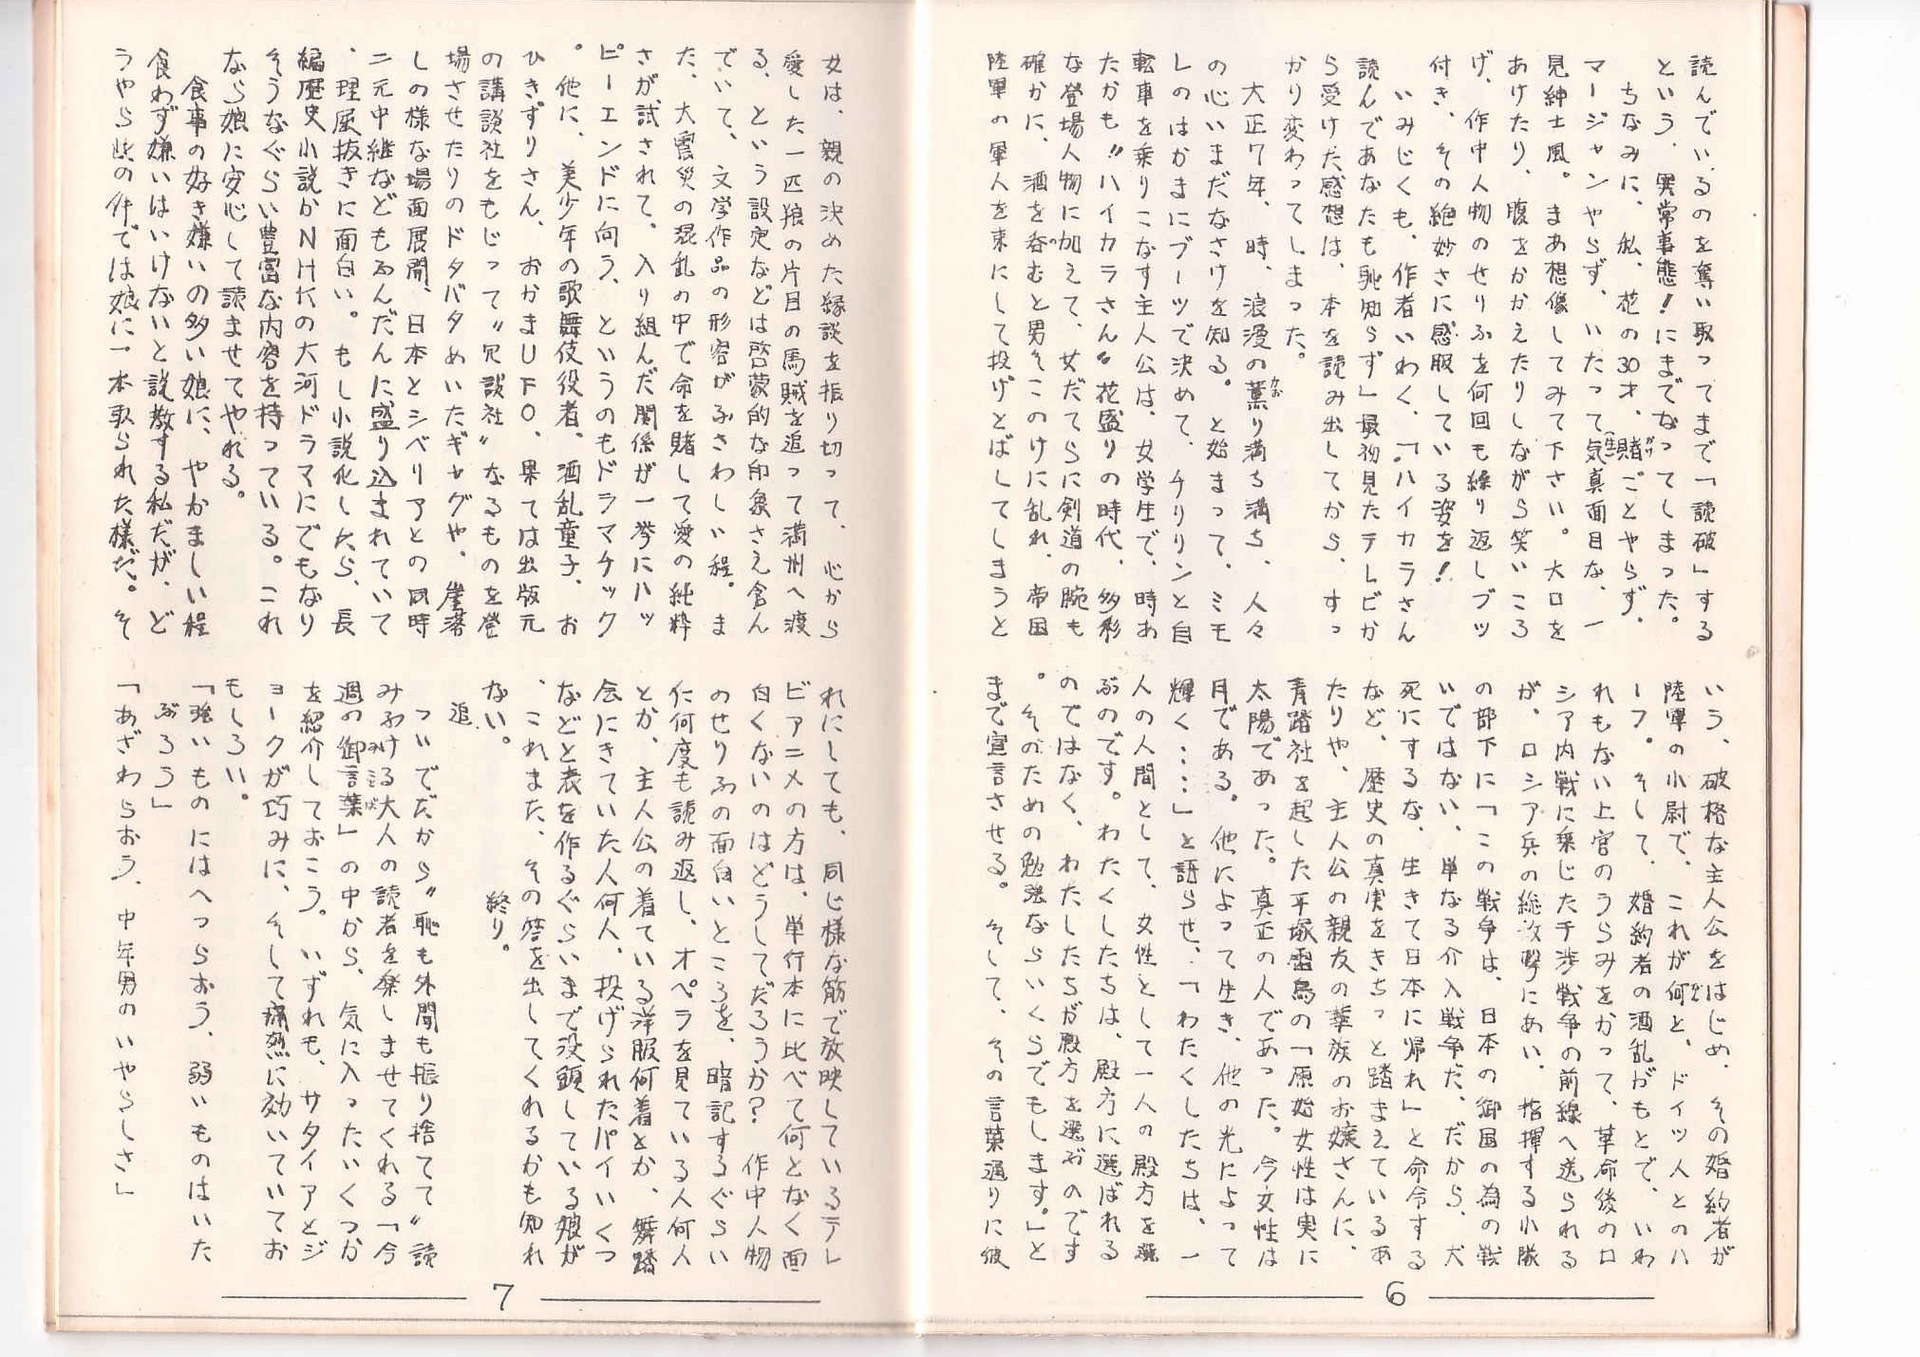 読んでいるのを奪い取ってまで「読破」する
という、異常事態!にまでなってしまった。
ちなみに、私、花の30才、賭ごとやらず、
マージャンやらず、いたって気真面目な、一
見紳士風。まあ想像してみて下さい。大口を
あけたり、腹をかかえたりしながら笑いころ
げ、作中人物のせりふを何回も繰り返しブッ
付き、その絶妙さに感服している姿を!
いみじくも、作者いわく、「ハイカラさん
読んであなたも恥知らず」最初見たテレビか
ら受けた感想は、本を読み出してから、すっ
かり変わってしまった。
大正7年、時、浪漫の薫り満ち満ち、人々
の心いまだなさけを知る。と始まって、ミモ
レのはかまにブーツで決めて、チリリンと自
転車を乗りこなす主人公は、女学生で、時あ
たかも〝ハイカラさん〟花盛りの時代、多彩
な登場人物に加えて、女だてらに剣道の腕も
確かに、酒を呑むと男そこのけに乱れ、帝国
陸軍の軍人を束にして投げとばしてしまうと
いう、破格な主人公をはじめ、その婚約者が
陸軍の小尉で、これが何と、ドイツ人とのハ
ーフ。そして、婚約者の酒乱がもとで、いわ
れもない上官のうらみをかって、革命後のロ
シア内戦に乗じた干渉戦争の前線へ送られる
が、ロシア兵の総攻撃にあい、指揮する小隊
の部下に「この戦争は、日本の御国の為の戦
いではない、単なる介入戦争だ、だから、犬
死にするな、生きて日本に帰れ」と命令する
など、歴史の真実をきちっと踏まえているあ
たりや、主人公の親友の華族のお嬢さんに、
青踏社を起した平塚雷鳥の「原始女性は実に
太陽であった。真正の人であった。今女性は
月である。他によって生き、他の光によって
輝く‥‥」と語らせ、「わたくしたちは、一
人の人間として、女性として一人の殿方を選
ぶのです。わたくしたちは、殿方に選ばれる
のではなく、わたしたちが殿方を選ぶのです
。そのための勉強ならいくらでもします。」と
まで宣言させる。そして、その言葉通りに彼
女は、親の決めた縁談を振り切って、心から
愛した一匹狼の片目の馬賊を追って満州へ渡
る、という設定などは啓蒙的な印象さえ含ん
でいて、文学作品の形容がふさわしい程。ま
た、大震災の混乱の中で命を賭して愛の純粋
さが試されて、入り組んだ関係が一挙にハッ
ピーエンドに向う、というのもドラマチック
。他に、美少年の歌舞伎役者、酒乱童子、お
ひきずりさん、おかまUFO、果ては出版元
の講談社をもじって〝冗談社〟なるものを登
場させたりのドタバタめいたギャグや、崖落
しの様な場面展開、日本とシベリアとの同時
二元中継などもふんだんに盛り込まれていて
、理屈抜きに面白い。もし小説化したら、長
編歴史小説かNHKの大河ドラマにでもなり
そうなぐらい豊富な内容を持っている。これ
なら娘に安心して読ませてやれる。
食事の好き嫌いの多い娘に、やかましい程
食わず嫌いはいけないと説教する私だが、ど
うやら此の件では娘に一本取られた様だ。そ
れにしても、同じ様な筋で放映しているテレ
ビアニメの方は、単行本に比べて何となく面
白くないのはどうしてだろうか?作中人物
のせりふの面白いところを、暗記するぐらい
に何度も読み返し、オペラを見ている人何人
とか、主人公の着ている洋服何着とか、舞踏
会にきていた人何人、投げられたパイいくつ
などと表を作るぐらいまで没頭している娘が
、これまた、その答を出してくれるかも知れ
ない。
終り。
追
ついでだから〝恥も外聞も振り捨てて〟読
みふける大人の読者を楽しませてくれる「今
週の御言葉」の中から、気に入ったいくつか
を紹介しておこう。いずれも、サタイアとジ
ョークが巧みに、そして痛烈に効いていてお
もしろい。
「強いものにはへつらおう、弱いものはいた
ぶろう」
「あざわらおう、中年男のいやらしさ」
6
7